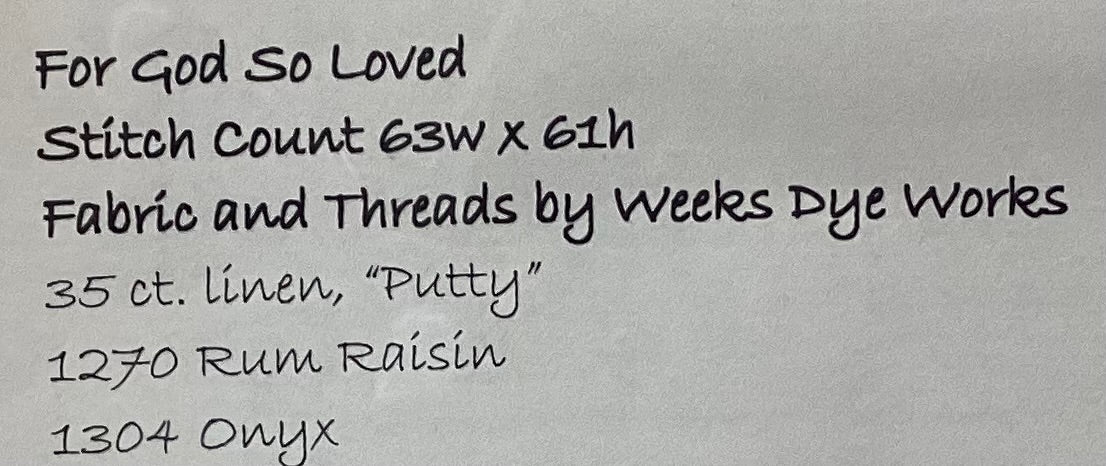 For God So Loved
Stitch Count 63W X 61h
Fabric and Threads by Weeks Dye Works
35 ct. linen, "Putty"
1270 Rum Raisin
1304 Onyx